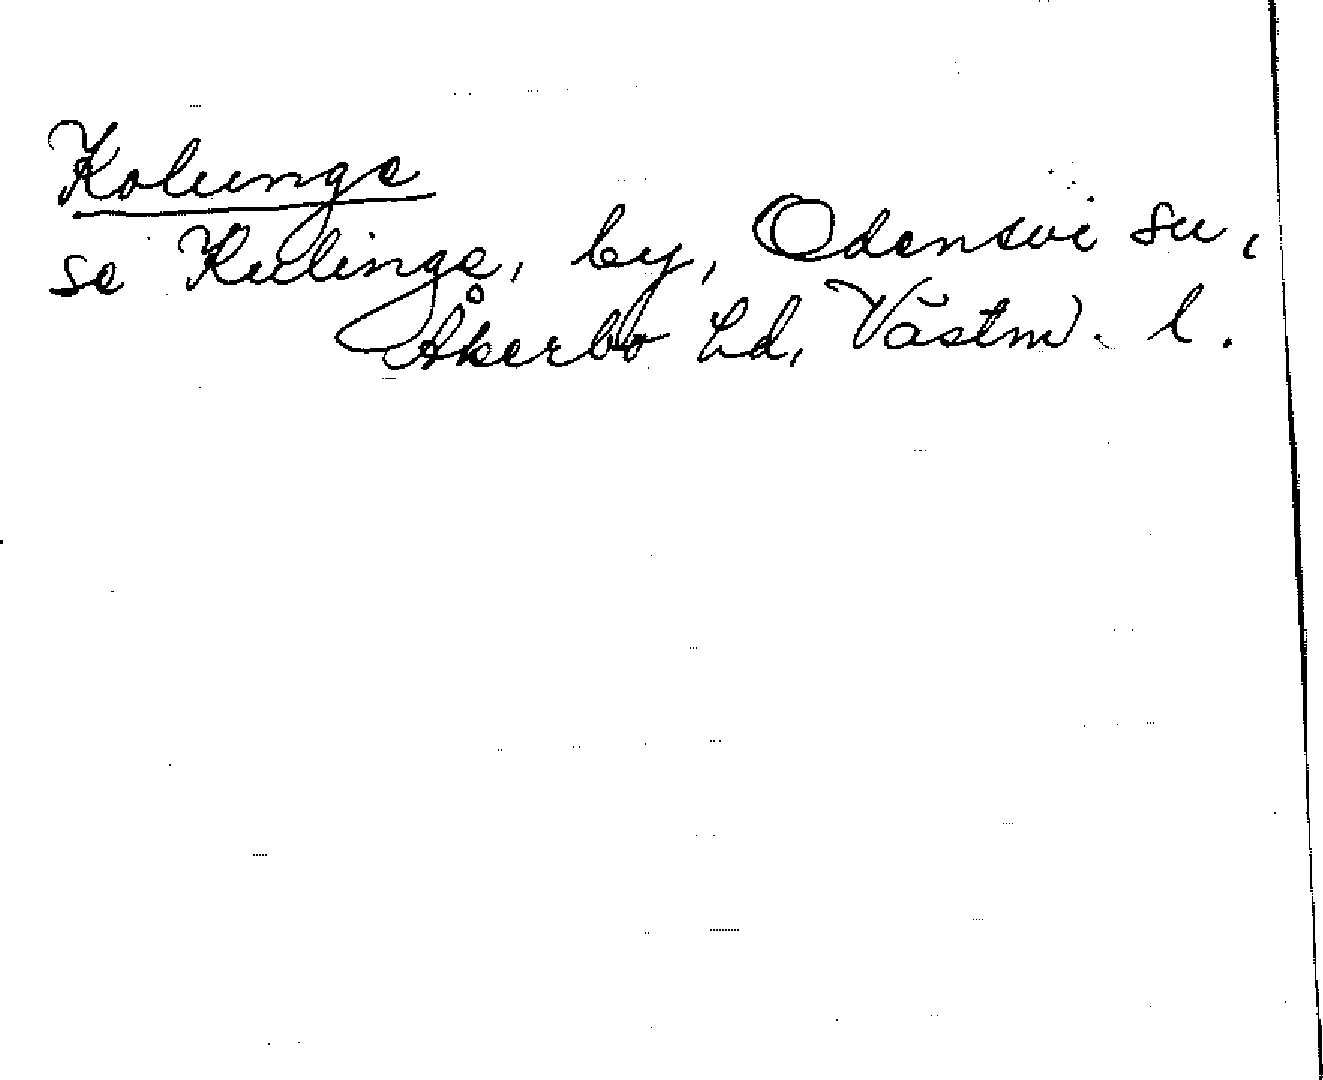 Kolunge
se Kulinge, by, Odensvi sn,
Åkerbo hd, Västm. l.